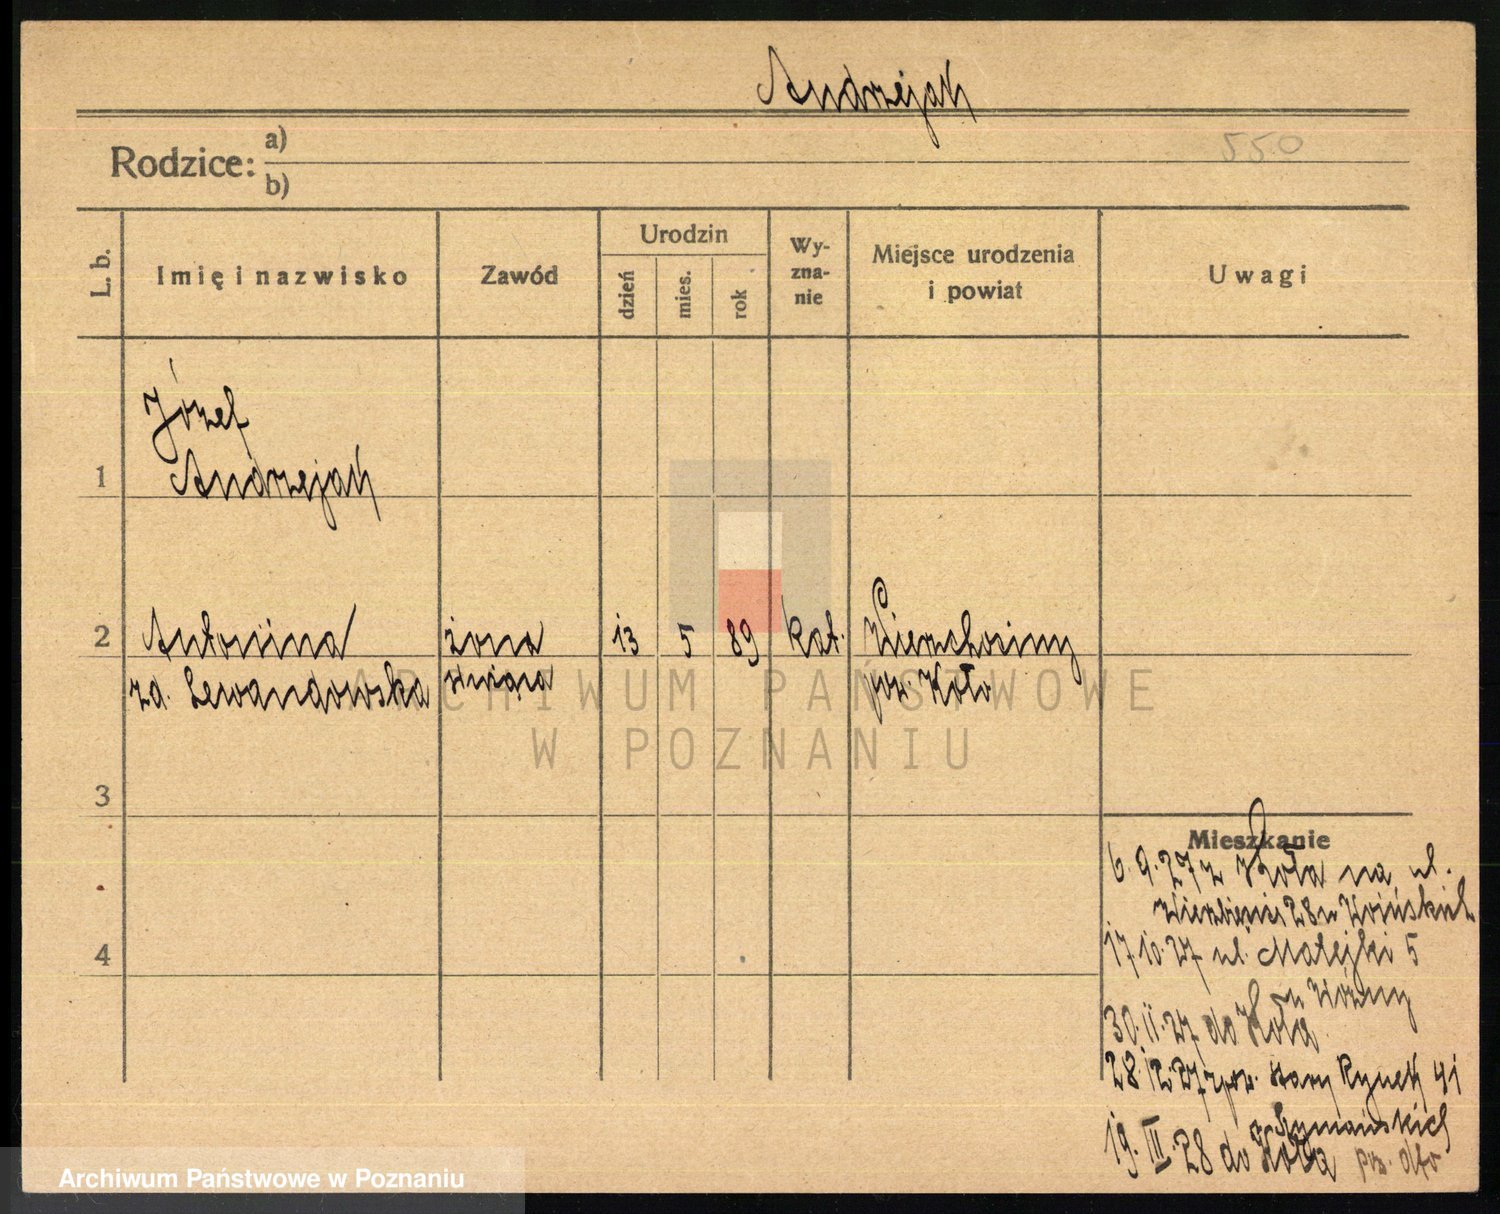 Andrzejak
550
Rodzice: a)
b)
L. b.
Imię i nazwisko
Zawód
Urodzin
dzień
mies.
rok
Wy-
zna-
nie
Miejsce urodzenia
i powiat
Uwagi
Józef
1 Andrzejak
2 Antonina żona 13 5 89 kat. Wierzchociny
zd. Lewandowska pow. Koło
ARCHIWUM PAŃSTWOWE
W POZNANIU
3
Mieszkanie
6.9.27 z Koła na ul.
28 u
4
17.10.27 ul. Matejki 5
u
30.11.27 do Koła
28.12.27 pow. Stary Rynek 41
Szymańskich
19.III.28 do Koła
Archiwum Państwowe w Poznaniu